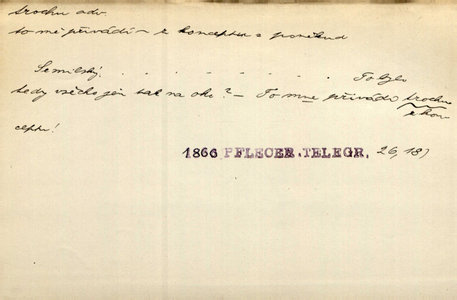 trochu adv.
to mě přivádí — z konceptu z poněkud
Semilský. . . . . . . . . To bylo
tedy všecko jen tak na oko? — To mne přivádí trochu
z kon
ceptu!
1866 PFLEGER.TELEGR. 26, 18)